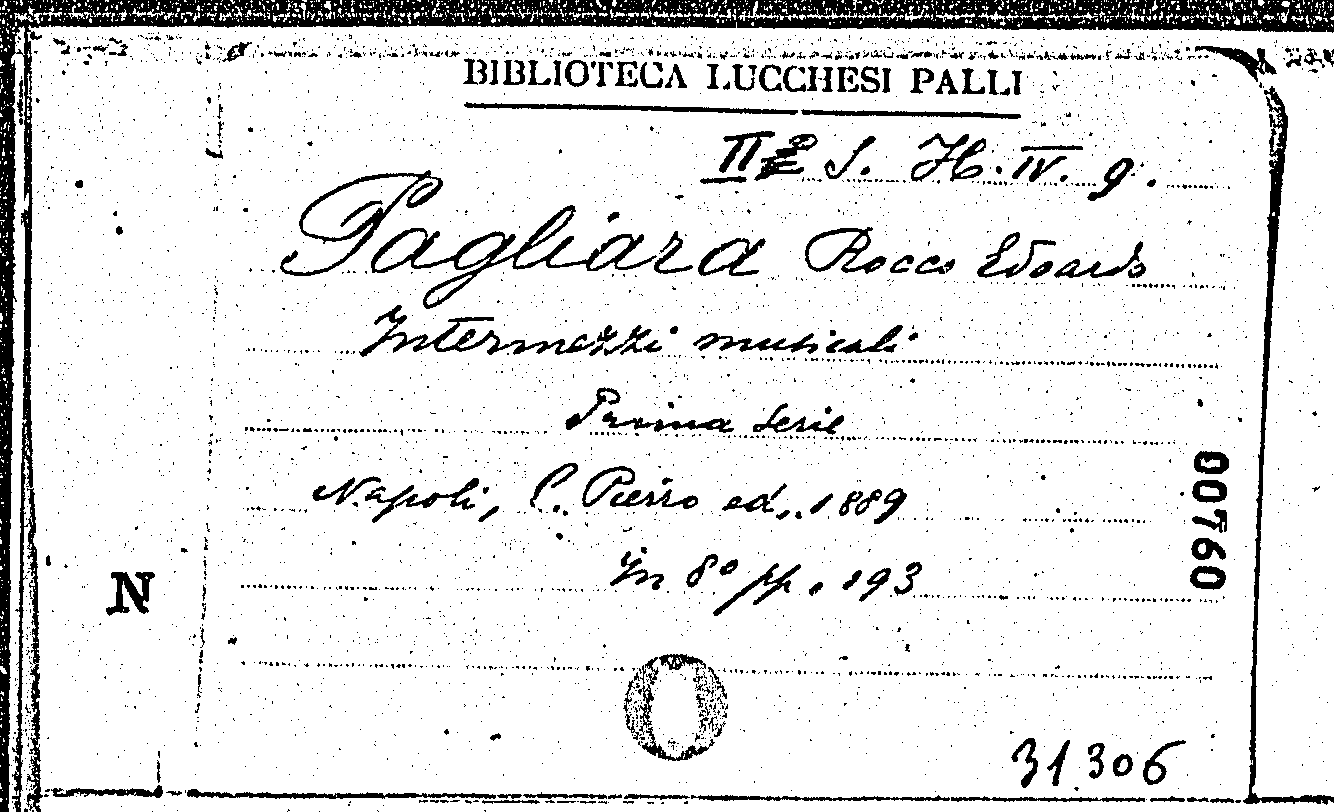 BIBLIOTECA LUCCHESI PALLI
II S. H. IV. 9.
Pagliara Rocco Edoardo
Intermezzi musicali
Prima serie
Napoli, L. Pierro ed., 1889
In 8° pp. 193
00760
N
31306